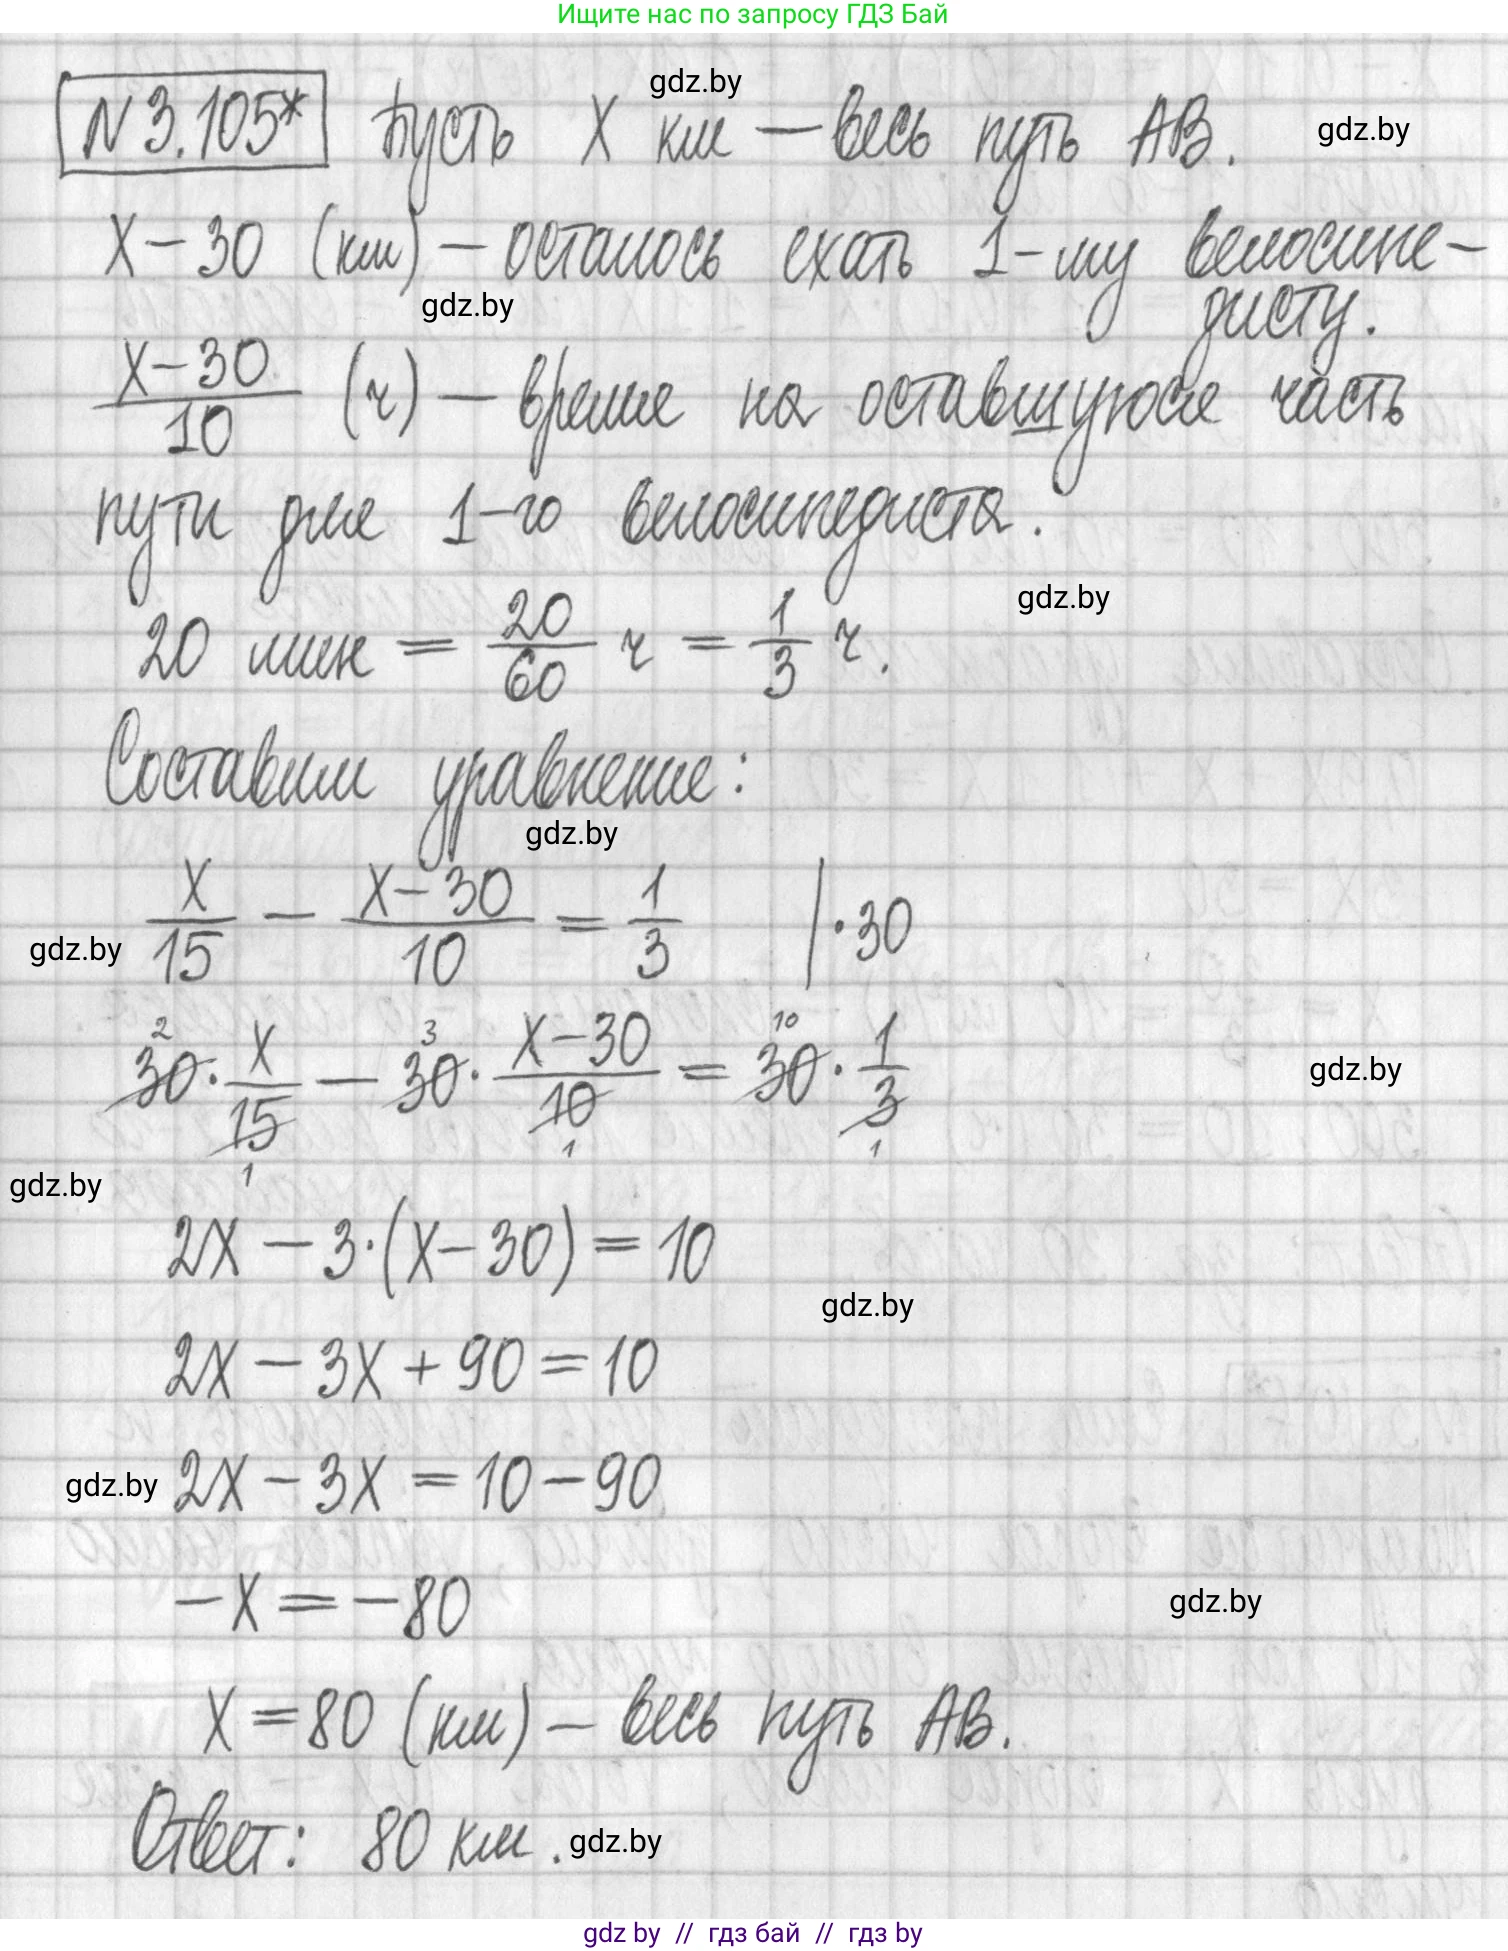 Ищите нас по запросу ГДЗ Бай
gdz.by
N 3.105* Пусть X км — весь путь AB. gdz.by
X − 30 (км) — осталось ехать 1-му велосипе-
gdz.by дисту.
(X − 30)/10 (ч) — время на оставшуюся часть
пути для 1-го велосипедиста.
gdz.by
20 мин = 20/60 ч = 1/3 ч.
Составим уравнение:
gdz.by
X/15 − (X − 30)/10 = 1/3 | · 30
gdz.by
30 (2) · X/15 (1) − 30 (3) · (X − 30)/10 (1) = 30 (10) · 1/3 (1)
gdz.by
gdz.by
2X − 3 · (X − 30) = 10
gdz.by
2X − 3X + 90 = 10
gdz.by 2X − 3X = 10 − 90
−X = −80 gdz.by
X = 80 (км) — весь путь AB.
Ответ: 80 км. gdz.by
gdz by // гдз бай // гдз by